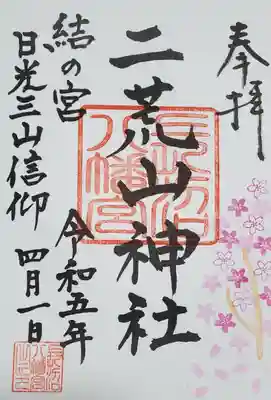 奉拝
二荒山神社
長沼
八幡宮
令和五年
四月一日
結の宮
日光三山信仰